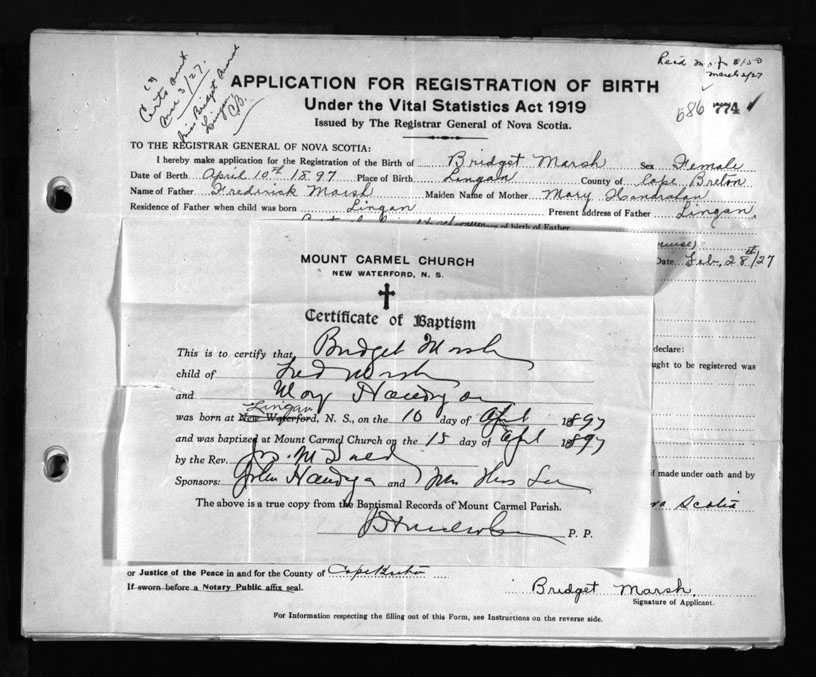 Certs sent
June 3/27.
Miss Bridget Marsh
Lingan
C.B.
Recd
March 2/27
APPLICATION FOR REGISTRATION OF BIRTH
Under the Vital Statistics Act 1919
Issued by The Registrar General of Nova Scotia.
686 774
TO THE REGISTRAR GENERAL OF NOVA SCOTIA:
I hereby make application for the Registration of the Birth of Bridget Marsh Sex Female
Date of Birth April 10th 1897 Place of Birth Lingan County of Cape Breton
Name of Father Frederick Marsh Maiden Name of Mother Mary
Residence of Father when child was born Lingan Present address of Father Lingan.
of birth of Father
Date Feb. 28th/27
MOUNT CARMEL CHURCH
NEW WATERFORD, N. S.
Certificate of Baptism
This is to certify that Bridget Marsh
child of Fred Marsh
and Mary
Lingan
was born at New Waterford, N. S., on the 10 day of April 1897
and was baptized at Mount Carmel Church on the 15 day of April 1897
by the Rev.
Sponsors: John and
The above is a true copy from the Baptismal Records of Mount Carmel Parish.
P. P.
declare:
ught to be registered was
if made under oath and by
va Scotia
or Justice of the Peace in and for the County of Cape Breton
If sworn before a Notary Public affix seal.
Bridget Marsh.
Signature of Applicant.
For Information respecting the filling out of this Form, see Instructions on the reverse side.